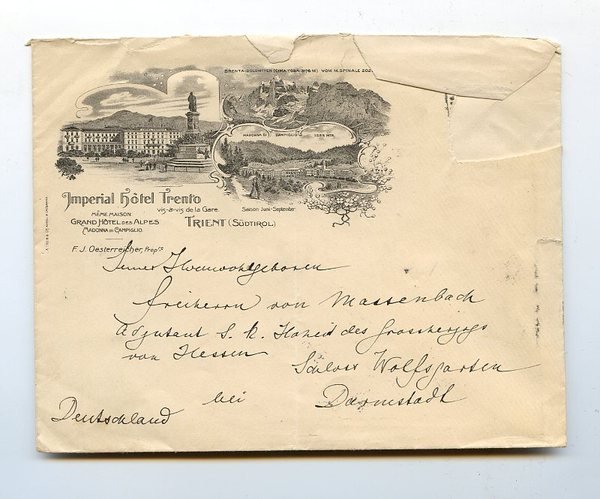 BRENTA-DOLOMITEN (CIMA TOSA 3176 M) VOM M. SPINALE 202
MADONNA DI CAMPIGLIO 1553 MTR.
Saison Juni-September
Imperial Hôtel Trento
vis-à-vis de la Gare.
MÊME MAISON
GRAND HÔTEL DES ALPES
MADONNA DI CAMPIGLIO.
TRIENT (SÜDTIROL)
F. J. Oesterreicher, Propre.
Seiner Hochwohlgeboren
Freiherrn von Massenbach
Adjutant S. K. Hoheit des Grossherzogs
von Hessen
Schloss Wolfsgarten
bei Darmstadt
Deutschland